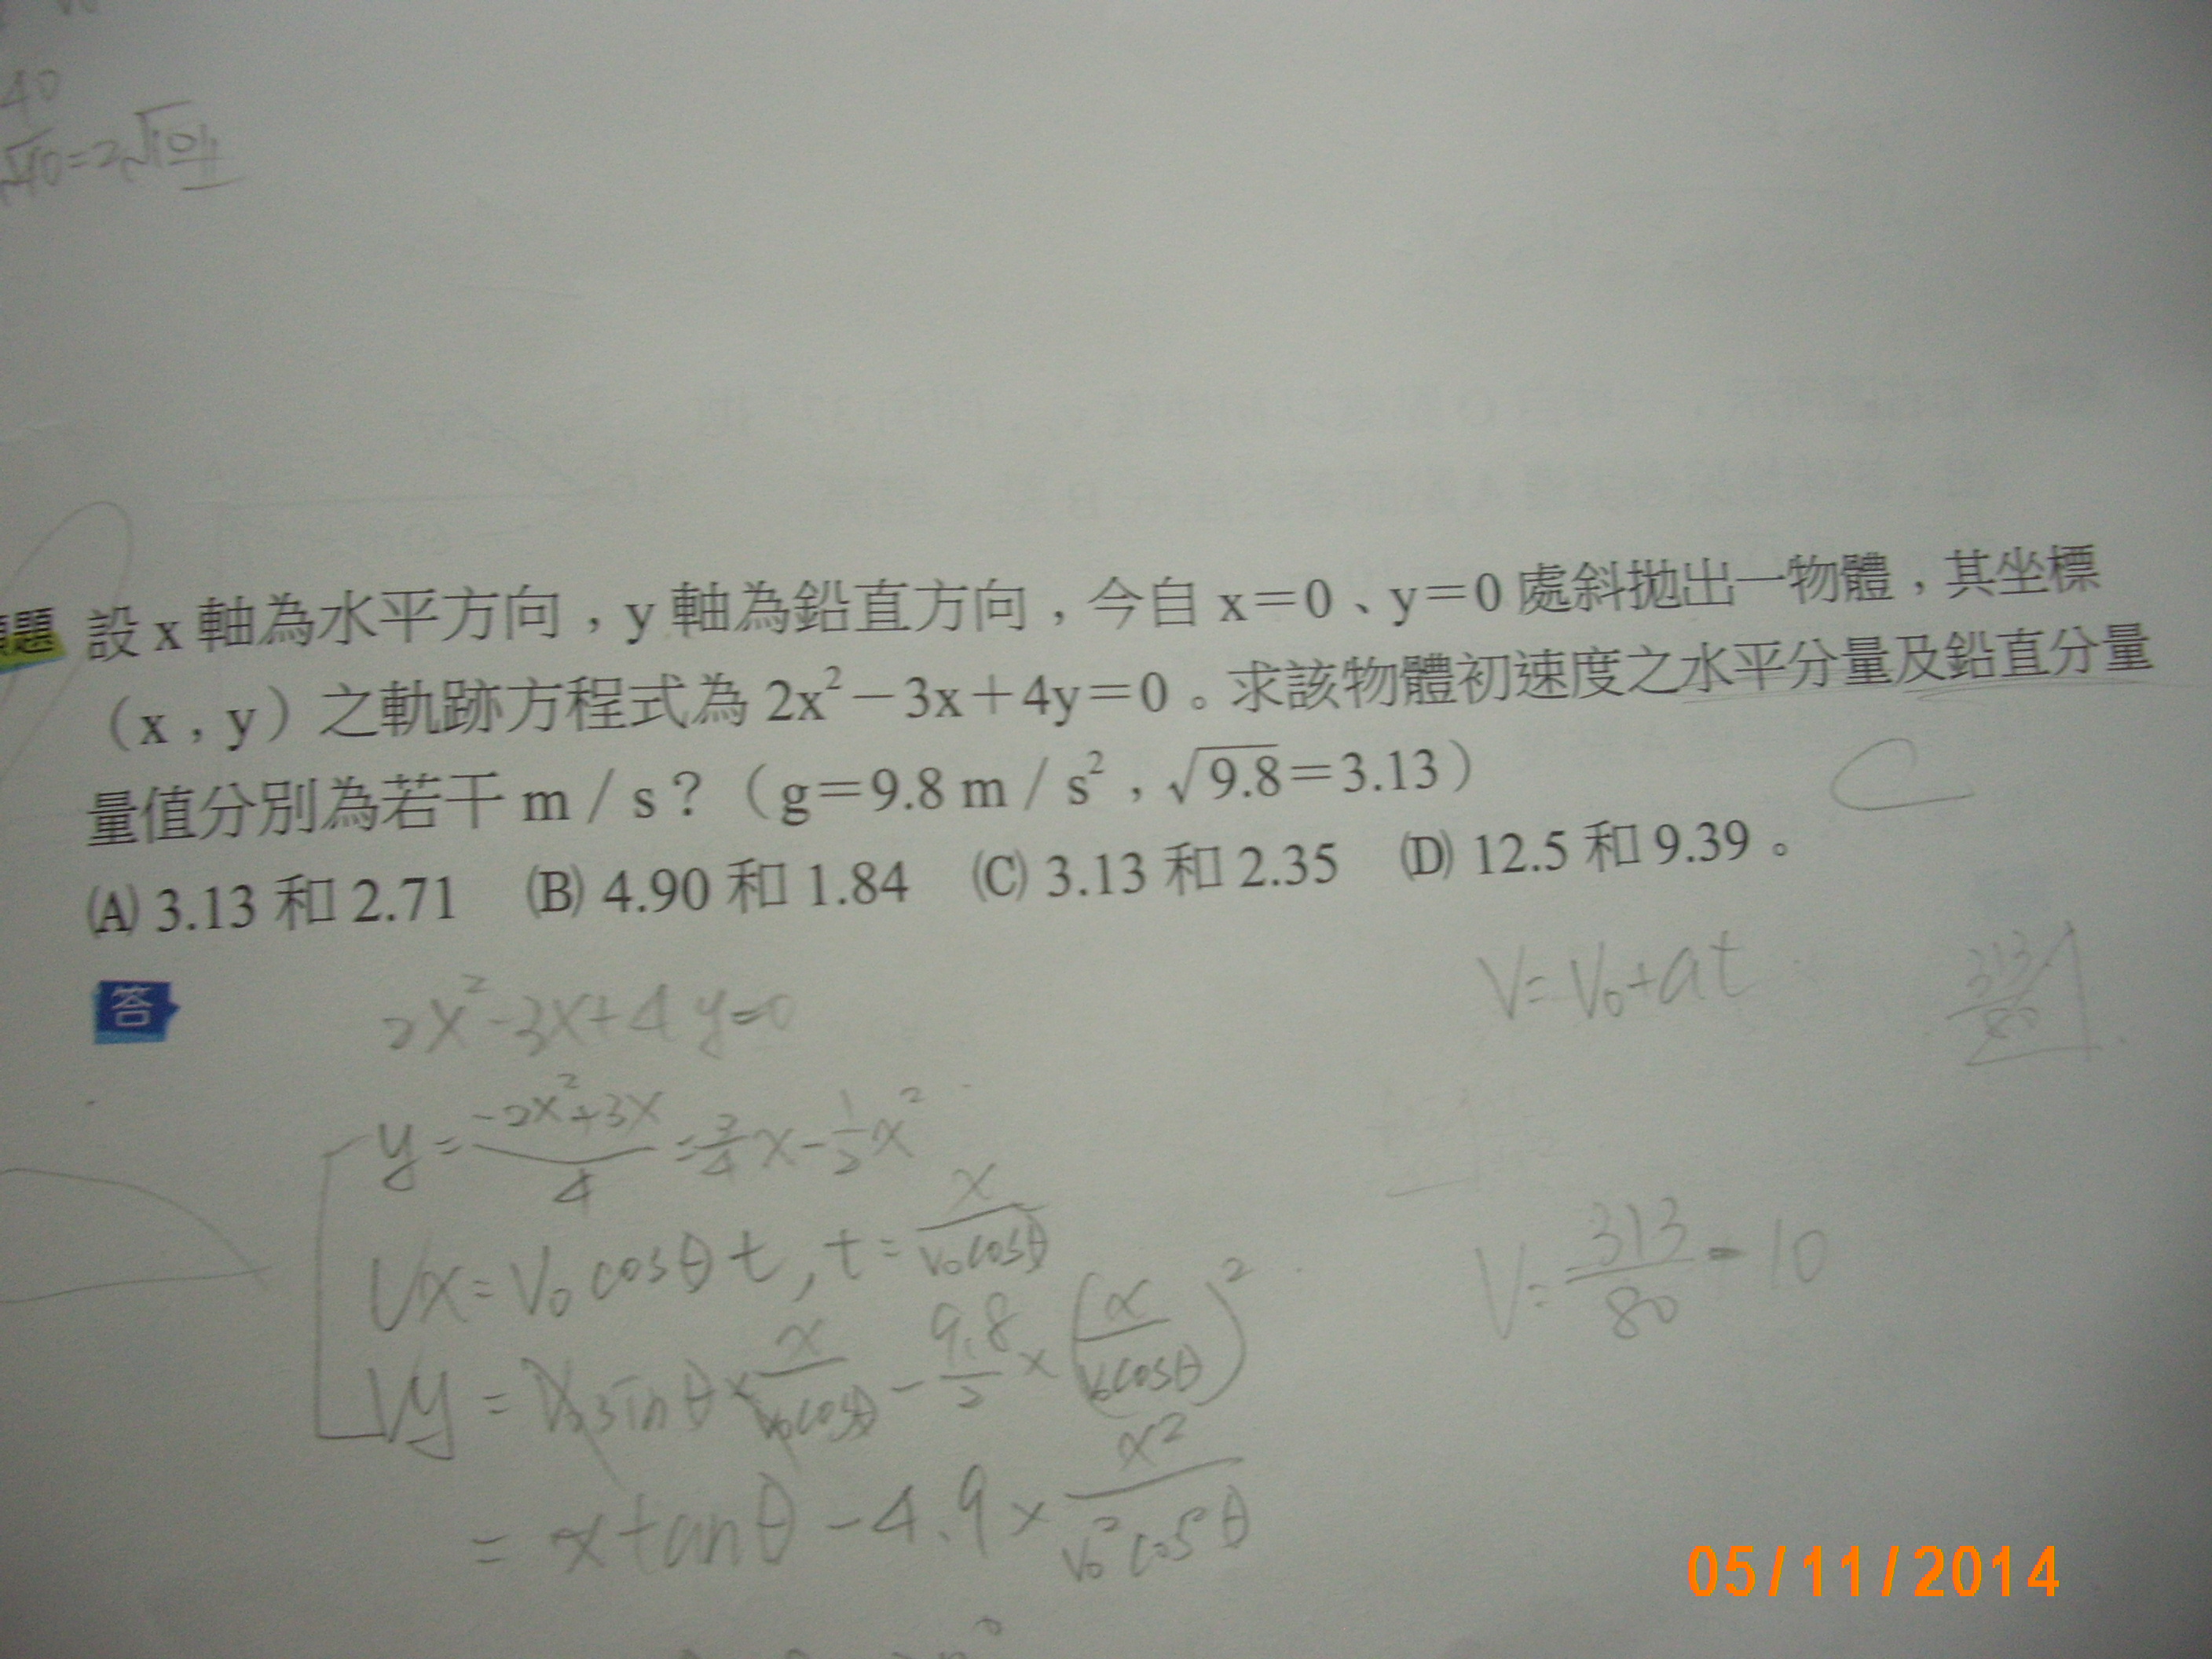 40
√40=2√10
題 設 x 軸為水平方向，y 軸為鉛直方向，今自 x＝0、y＝0 處斜拋出一物體，其坐標
（x，y）之軌跡方程式為 2x²－3x＋4y＝0。求該物體初速度之水平分量及鉛直分量
量值分別為若干 m／s？（g＝9.8 m／s²，√9.8＝3.13）
C
(A) 3.13 和 2.71 (B) 4.90 和 1.84 (C) 3.13 和 2.35 (D) 12.5 和 9.39。
答
2x²-3x+4y=0
V=V₀+at
313/80
y=(-2x²+3x)/4=3/4x-1/2x²
Vx=V₀cosθt, t=x/(V₀cosθ)
V=313/80-10
Vy=V₀sinθ×x/(V₀cosθ)-9.8/2×(x/(V₀cosθ))²
=xtanθ-4.9×x²/(V₀²cos²θ)
05/11/2014